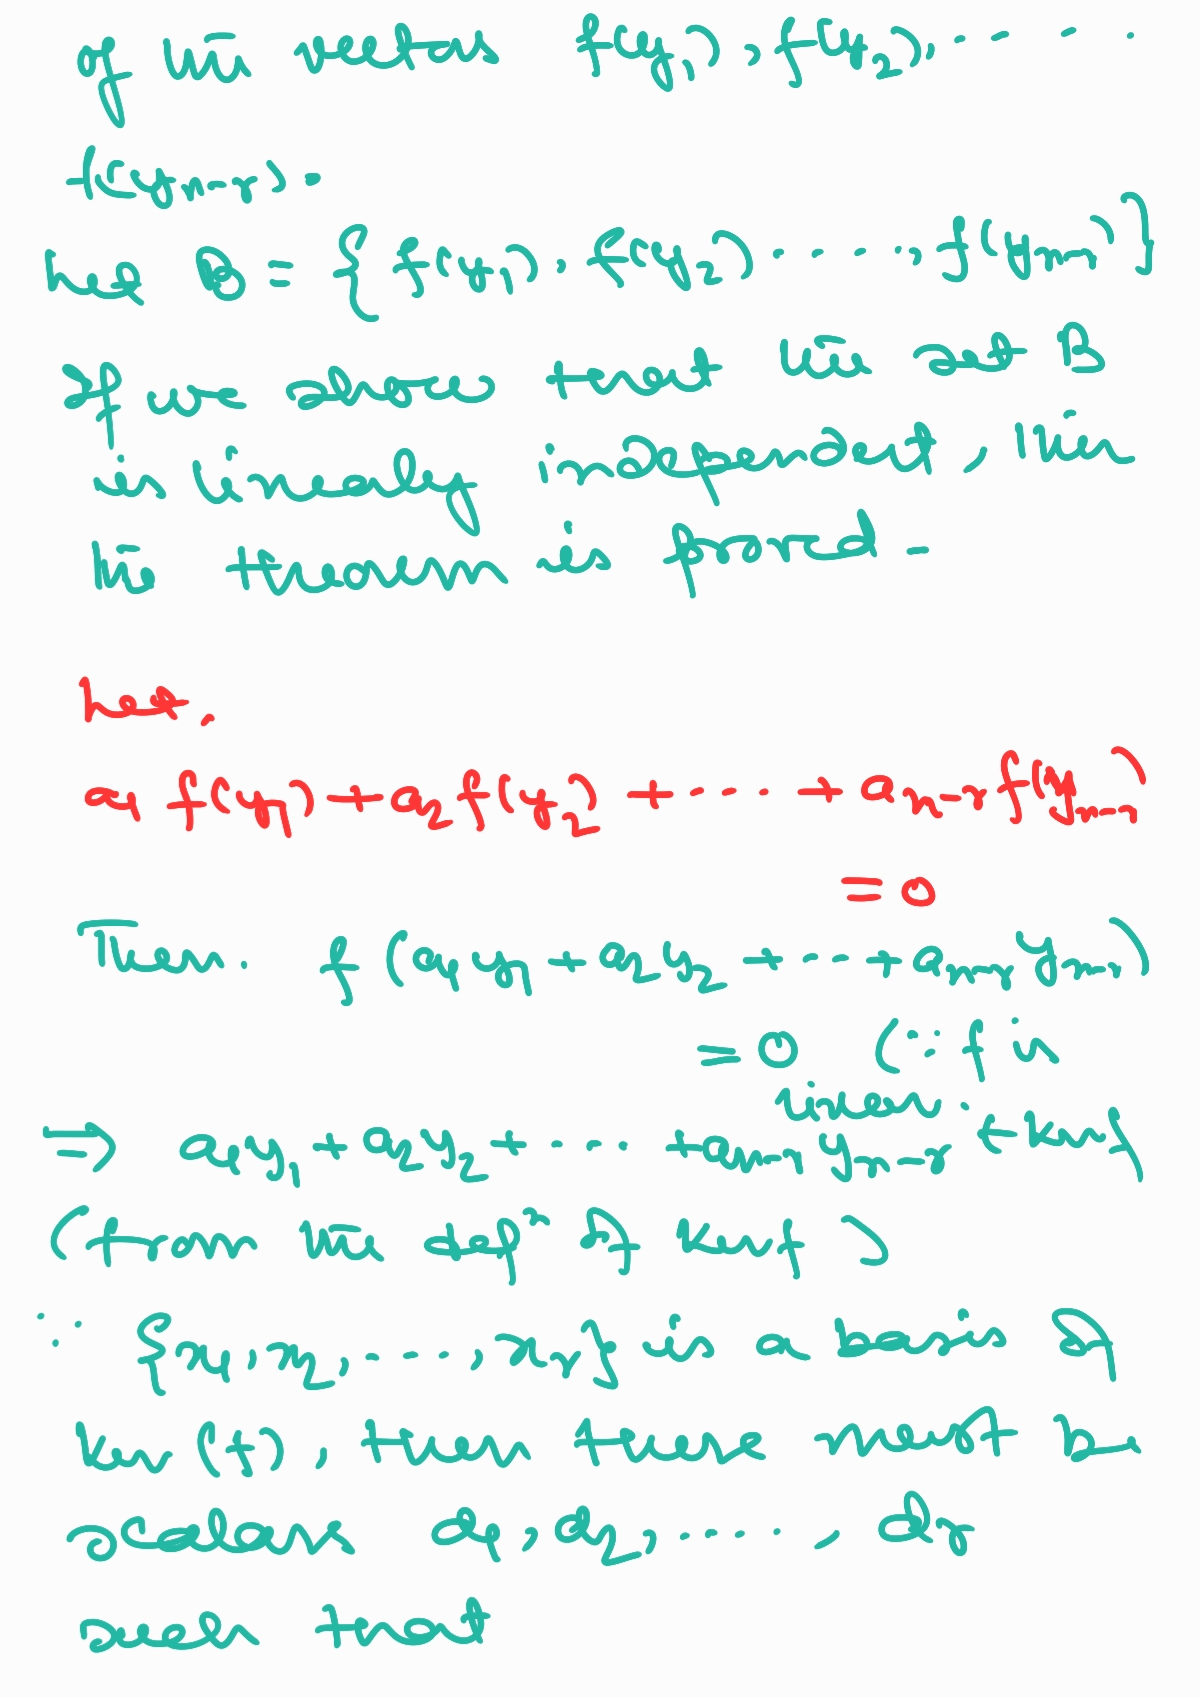 of the vectors f(y₁), f(y₂), ....
f(yₙ₋ᵣ).
Let B = { f(y₁), f(y₂) ....., f(yₙ₋ᵣ) }
If we show that the set B
is linearly independent, then
the theorem is proved -
Let,
a₁ f(y₁) + a₂ f(y₂) + .... + aₙ₋ᵣ f(yₙ₋ᵣ)
= 0
Then. f (a₁y₁ + a₂y₂ + ... + aₙ₋ᵣ yₙ₋ᵣ)
= 0 (∵ f is
linear.
⇒ a₁y₁ + a₂y₂ + .... + aₙ₋ᵣ yₙ₋ᵣ ∈ Kerf
(from the defⁿ of Kerf)
∵ {x₁, x₂, ...., xᵣ} is a basis of
ker(f), then there must be
scalars d₁, d₂, ....., dᵣ
such that